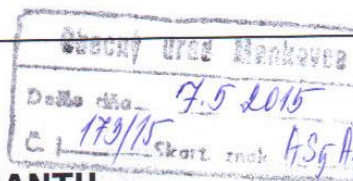 Obecný úrad Menkovce
Došlo dňa 7.5 2015
Č. j. 179/15 Skart. znak
ANTU